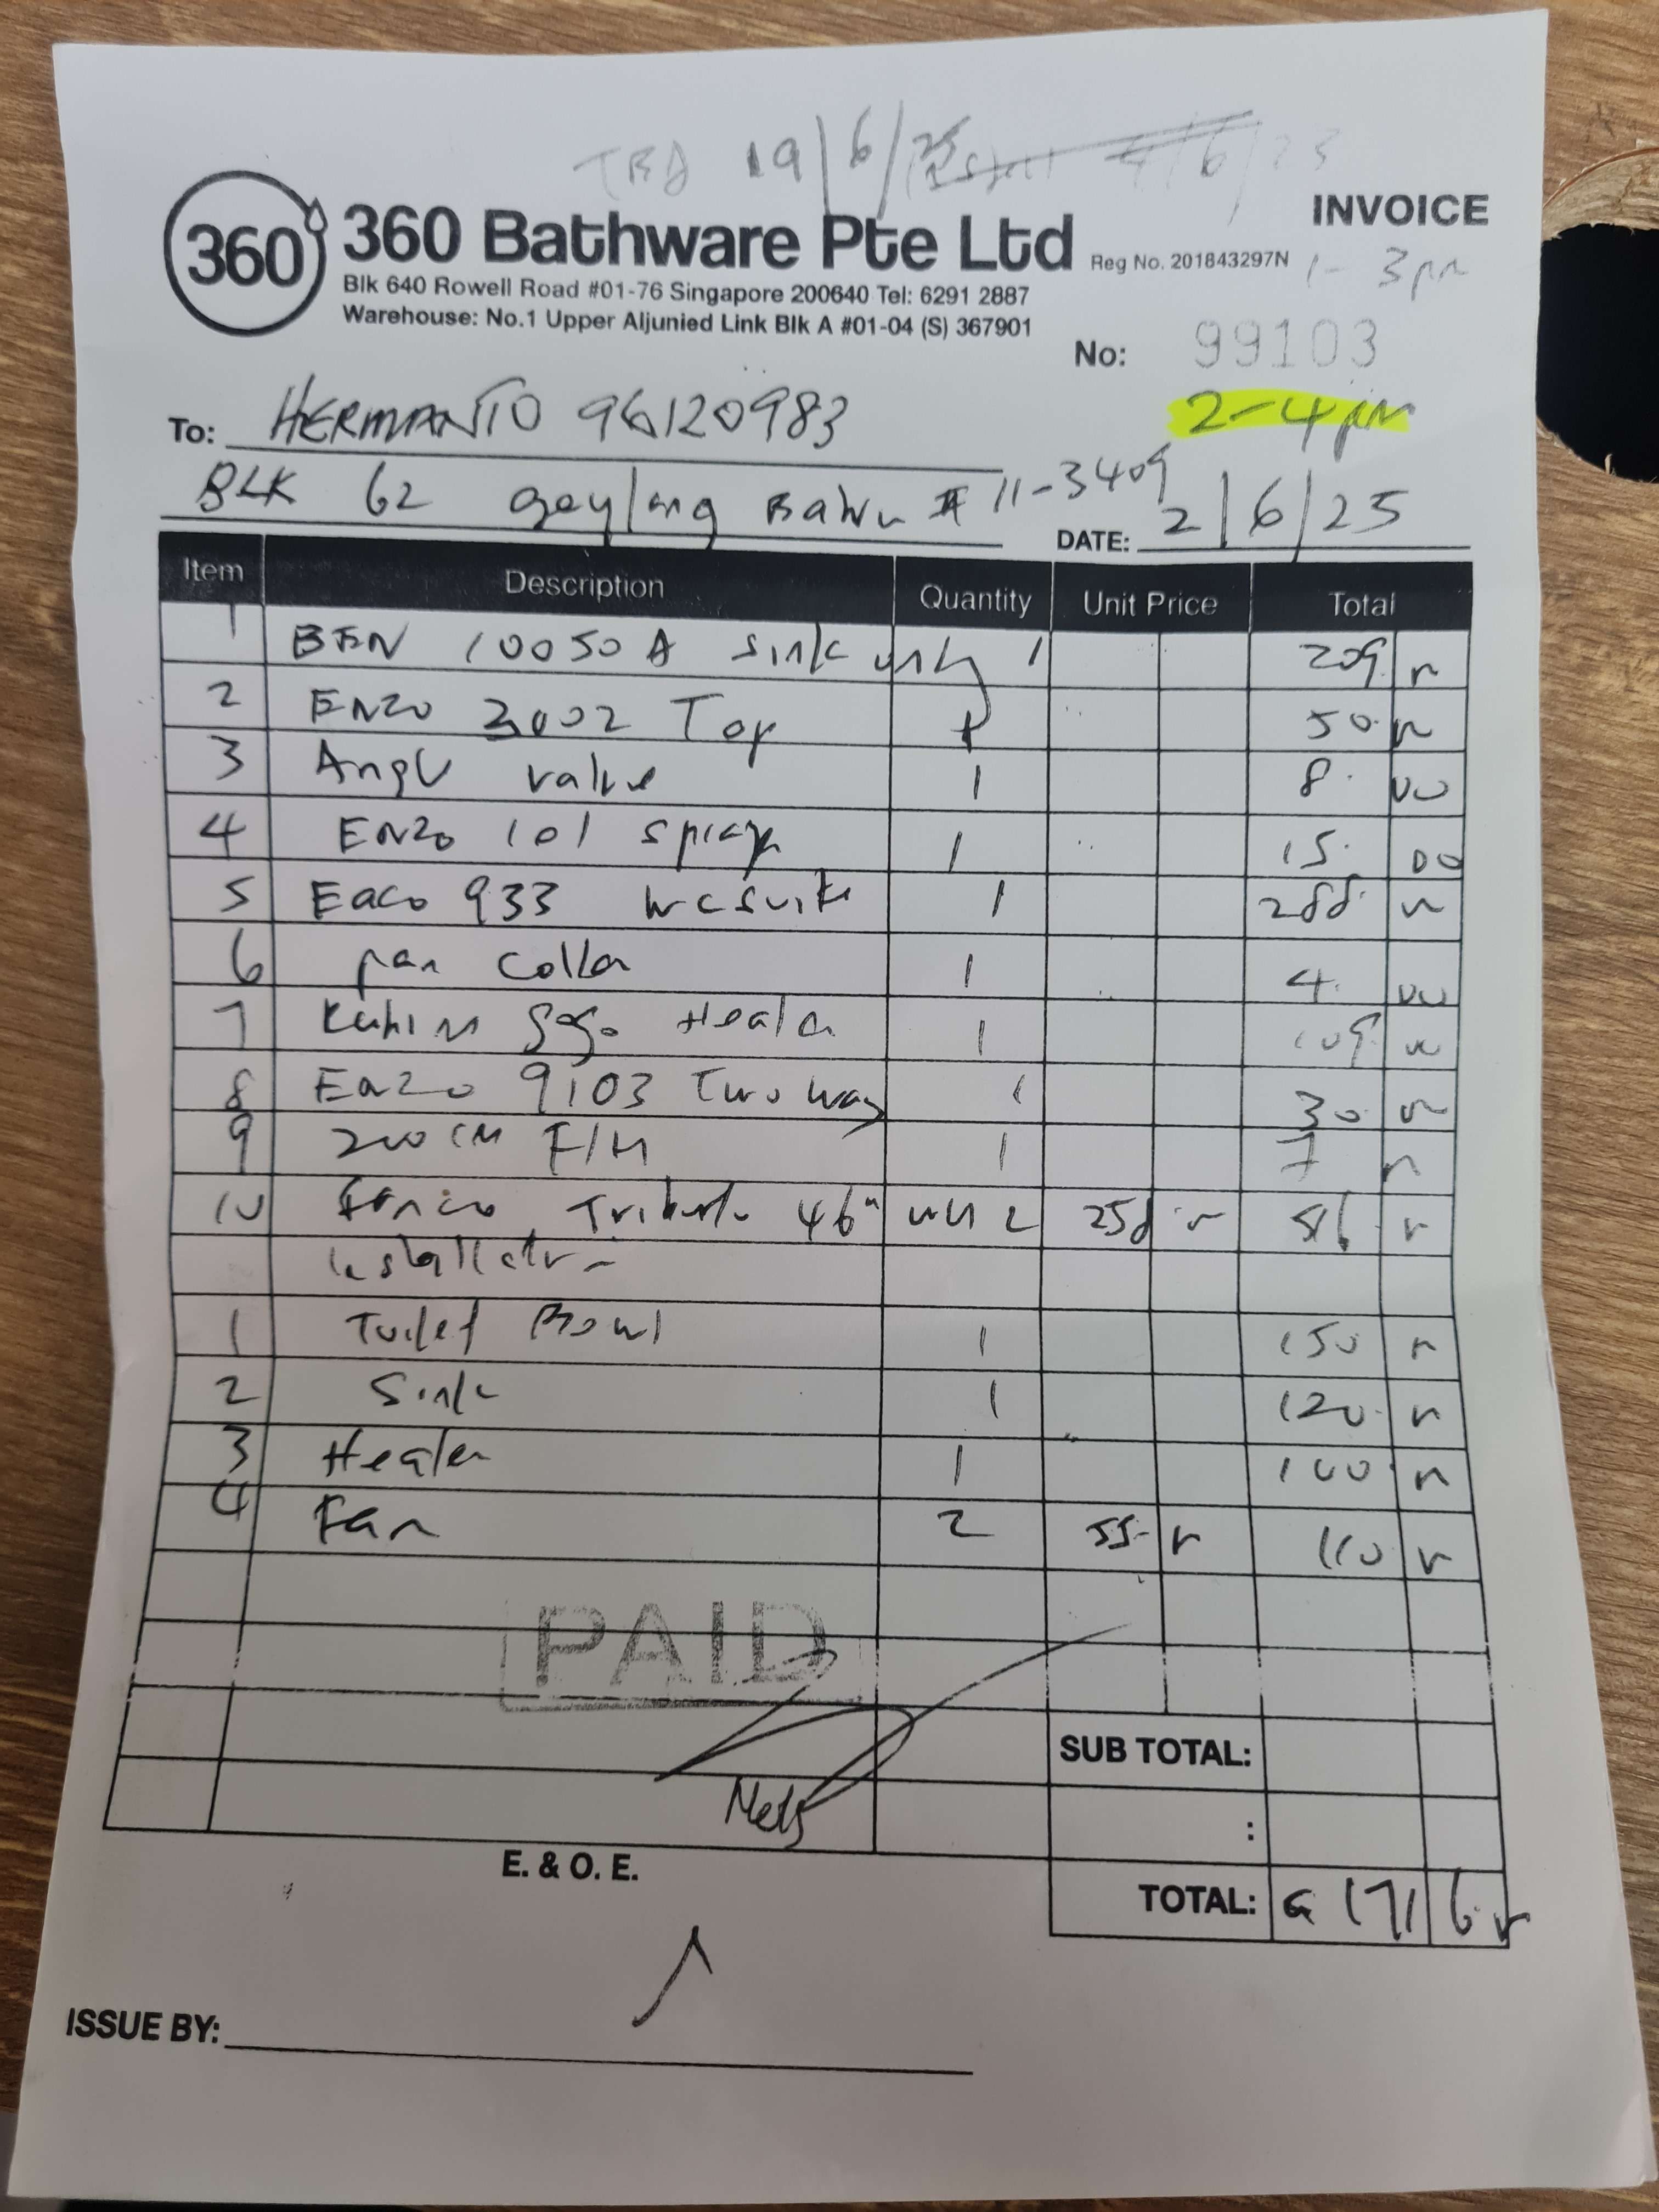 TBA 19/6/25 4/6/23
INVOICE
360
360 Bathware Pte Ltd
Reg No. 201843297N
1-3pm
Blk 640 Rowell Road #01-76 Singapore 200640 Tel: 6291 2887
Warehouse: No.1 Upper Aljunied Link Blk A #01-04 (S) 367901
No: 99103
2-4pm
To: HERMANTO 96120983
BLK 62 geylang Bahru #11-3409
DATE: 2/6/25
Item Description Quantity Unit Price Total
1 BEN 10050A sink only 1 209 00
2 ENZO 3002 Tap 1 50 00
3 Angle valve 1 8 00
4 ENZO 101 spray 1 15 00
5 933 wc suite 1 288 00
6 pan collar 1 4 00
7 Heater 1 109 00
8 Enzo 9103 Two way 1 30 00
9 200 CM F/H 1 7 00
10 46" 2 258 00 516 00
Installation
1 Toilet Bowl 1 150 00
2 Sink 1 120 00
3 Heater 1 100 00
4 Fan 2 55 00 110 00
PAID
Nets
SUB TOTAL:
:
E. & O. E.
TOTAL: 1716 00
ISSUE BY: